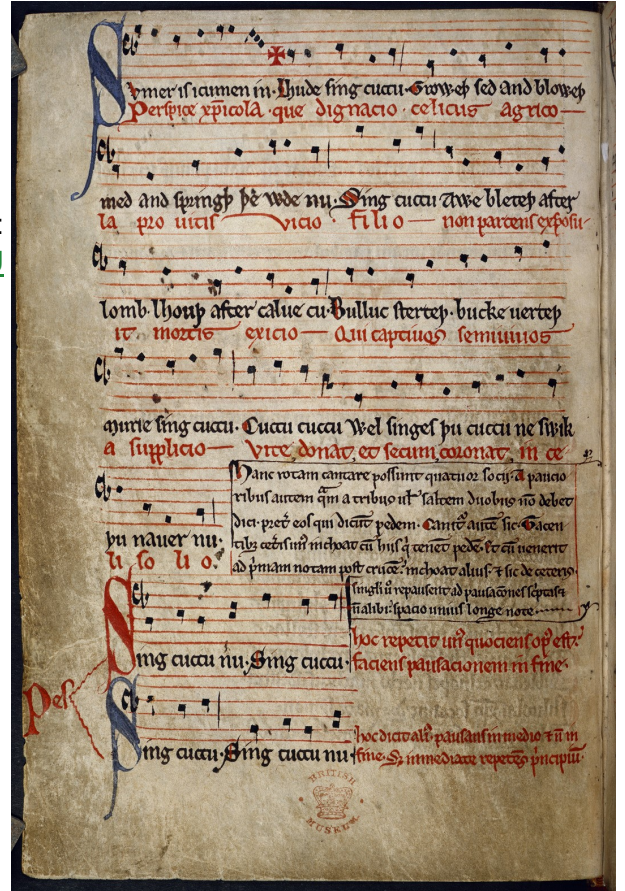 Svmer is icumen in. Lhude sing cuccu. Groweþ sed and bloweþ
Perspice xp̄icola · que dignacio · celicus agrico
med and springþ þe wde nu. Sing cuccu Awe bleteþ after
la pro uitis vicio · filio non parcens exposu
lomb. lhouþ after calue cu. Bulluc sterteþ. bucke uerteþ
it mortis exicio Qui captiuos semiuiuos
murie sing cuccu. Cuccu cuccu Wel singes þu cuccu ne swik
a supplicio Vite donat, et secum coronat, in ce
þu nauer nu.
li so li o.
Hanc rotam cantare possunt quatuor socij. A paucio
ribus autem q̄m a tribus ul' saltem duobus nō debet
dici. pret' eos qui dicūt pedem. Canit' autē sic. Tacen
tibȝ cet'is un' inchoat cū hiis q' tenēt pedē. Et cū uenerit
ad p'mam notam post crucē, inchoat alius. ⁊ sic de ceteris.
singl'i u' repausent ad pausacōnes sc'ptas ⁊
n̄ alibi. spacio unius longe note
Sing cuccu nu. Sing cuccu.
hoc repetit un' quociens op' est,
faciens pausacionem in fine.
Pes
Sing cuccu. Sing cuccu nu
hoc dicit ali', pausans in medio ⁊ n̄ in
fine. S; inmediate repetēs p'ncipiū.
BRITISH
MUSEUM